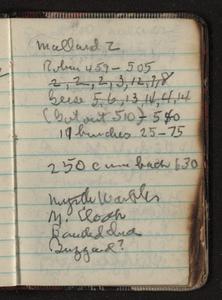 Mallard 2
Robin 459-505
2, 2, 2, 3, 12, 1, 8
Geese 5, 6, 13, 14, 4, 14
(but out 510-540
19 bunches 25-75
250 came back 630
Myrtle Warbler
M. Cloak
Banded
Buzzard?